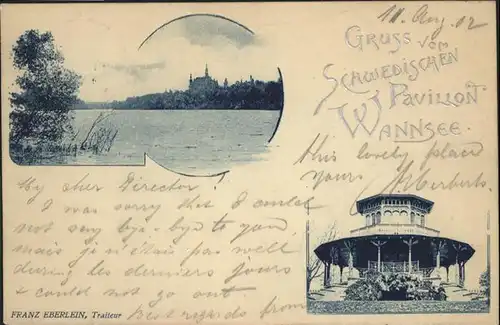 11. Aug. 02
GRUSS vom
SCHWEDISCHEN
PAVILLON
WANNSEE.
My dear Director
I was sorry that I could
not say bye-bye to you,
mais je n'étais pas well
during les derniers jours
& could not go out
Best regards from
this lovely place
yours
FRANZ EBERLEIN, Traiteur